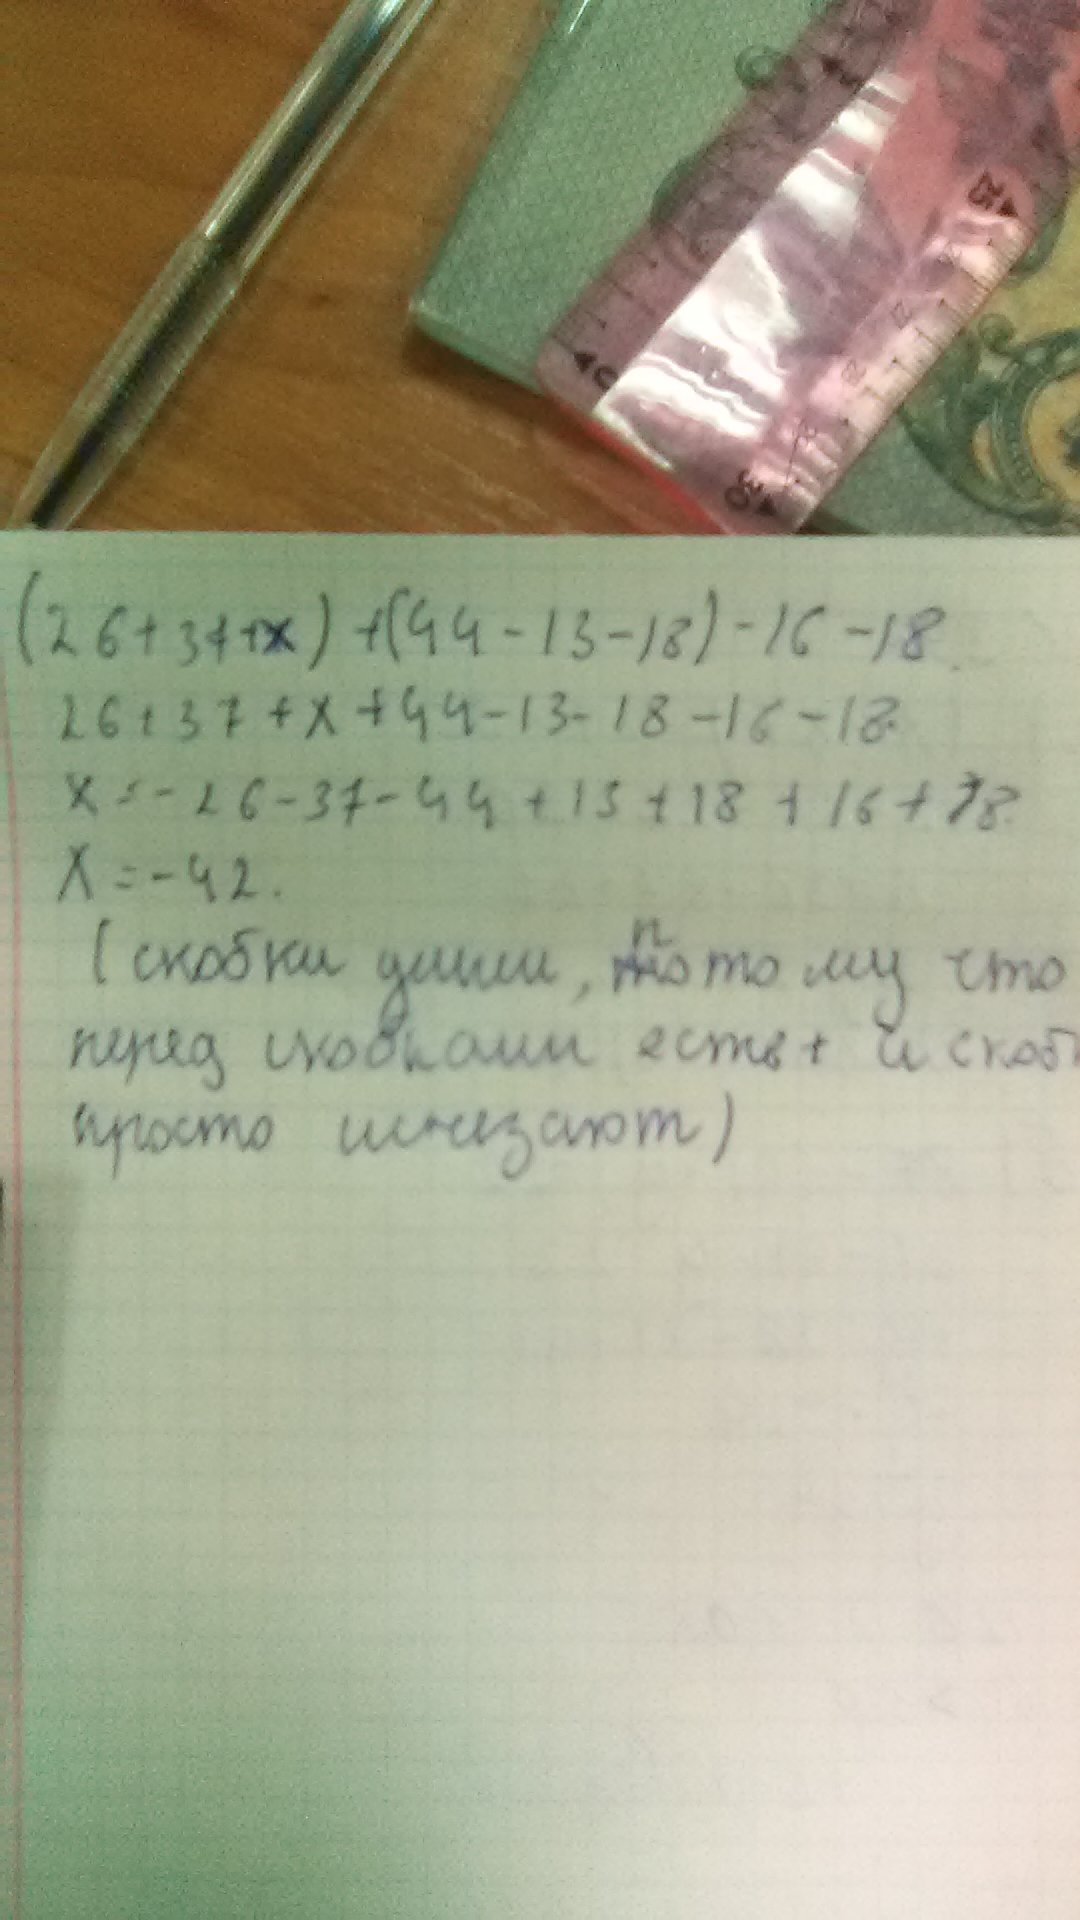 (26+37+x)+(44-13-18)-16-18
26+37+x+44-13-18-16-18
x=-26-37-44+13+18+16+18
x=-42.
(скобки
потому что
перед скобками есть + и скоб
просто исчезают)
15
0
30